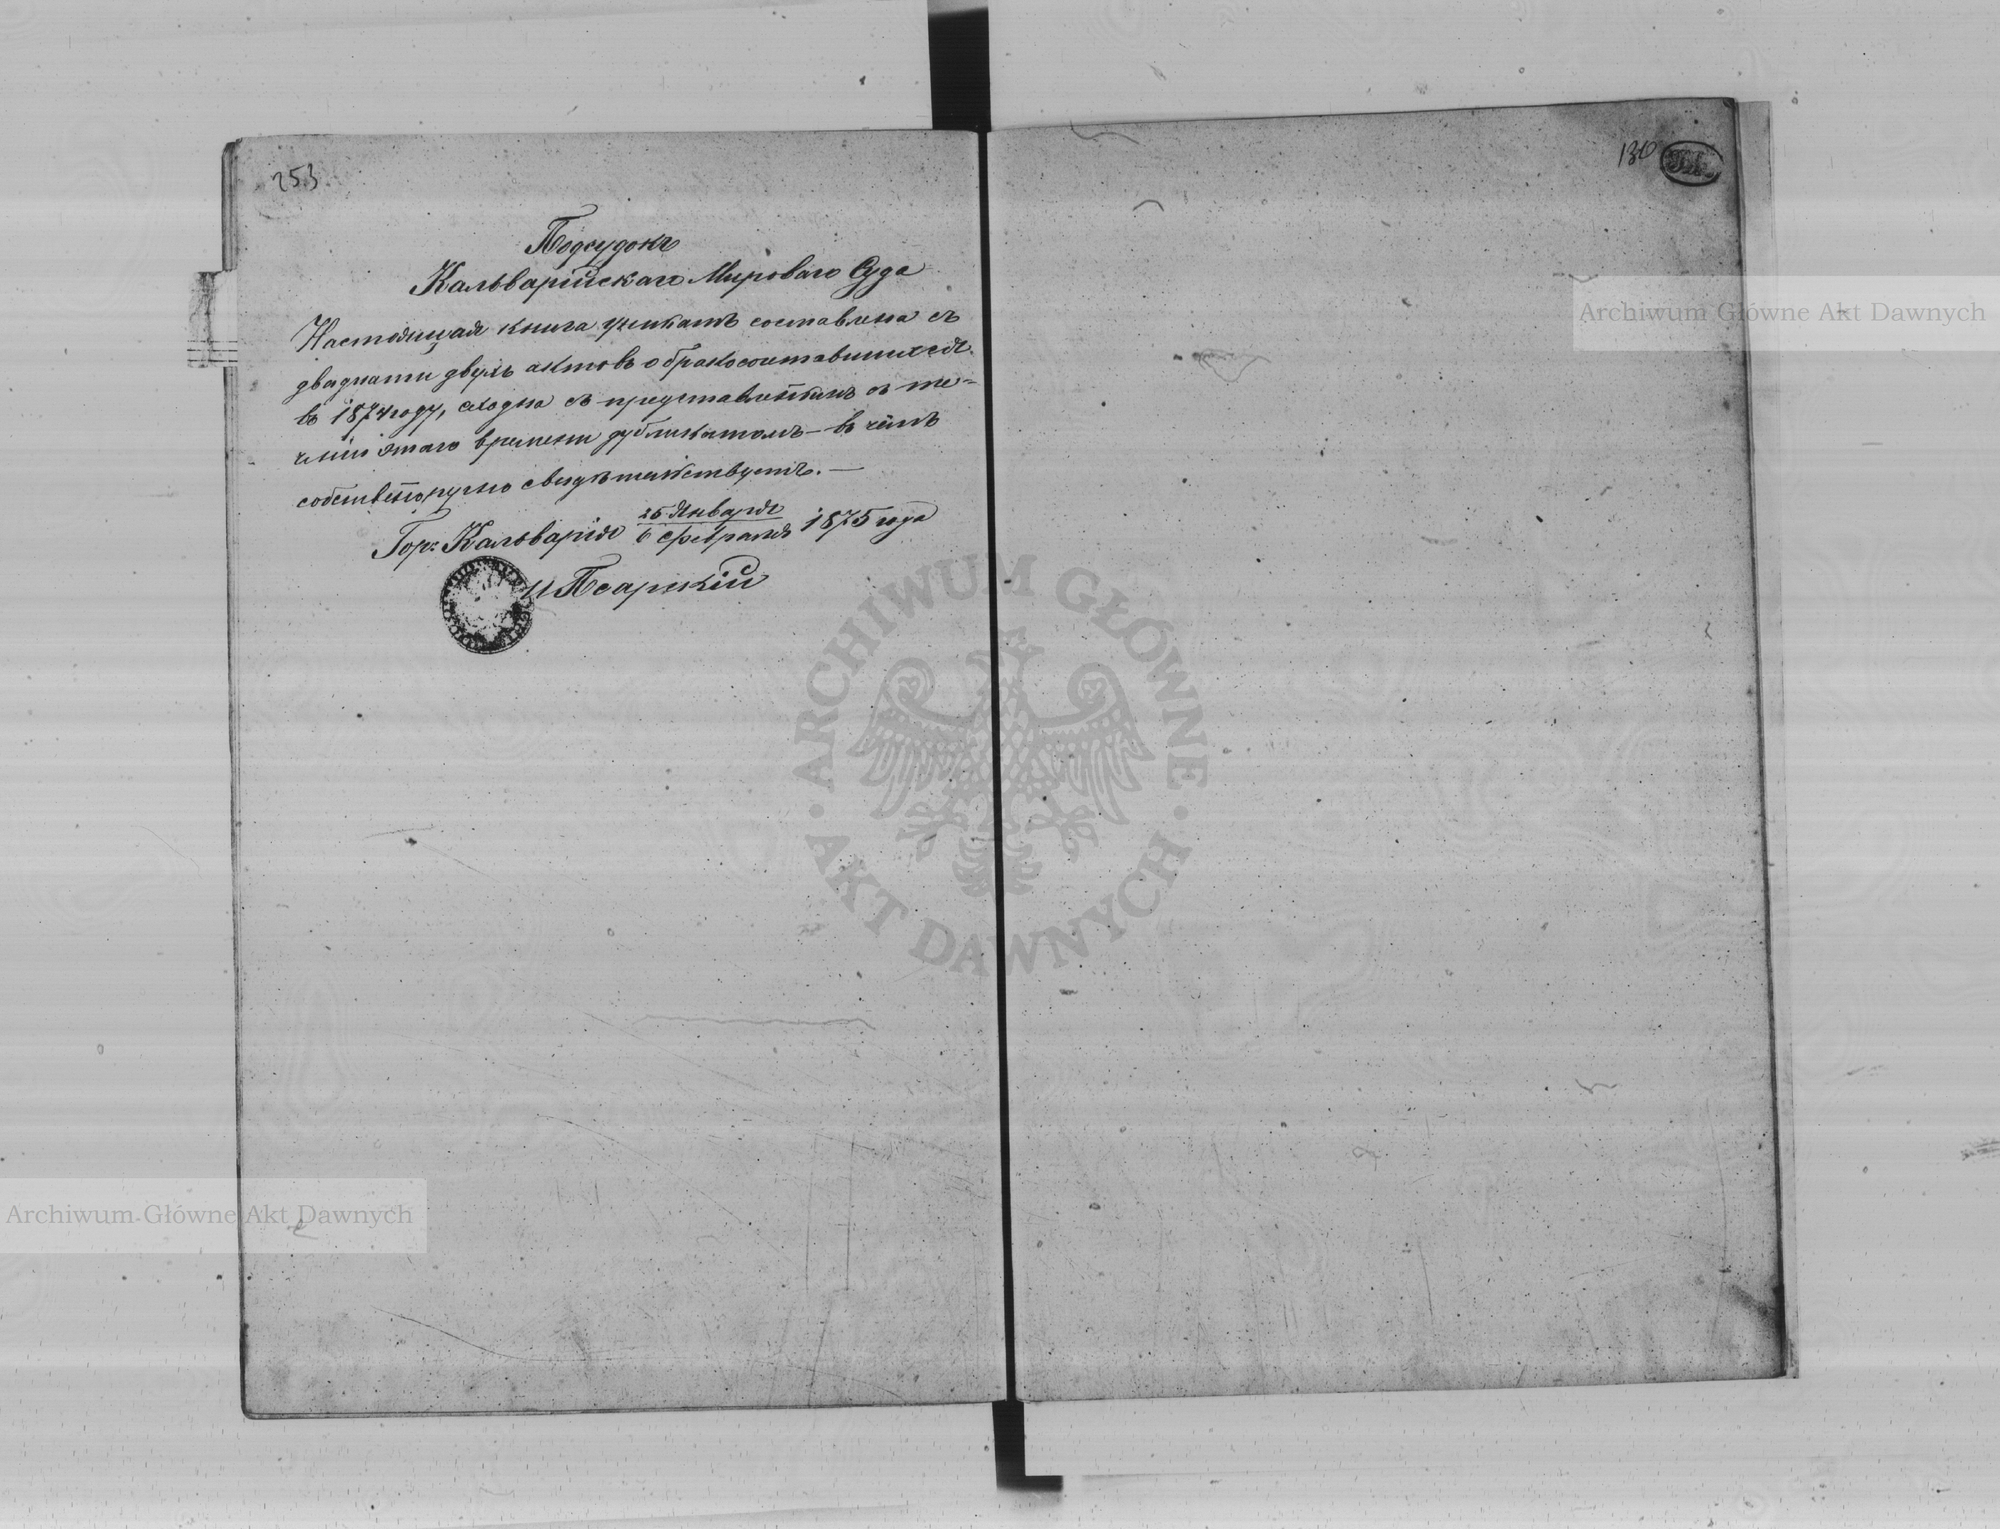 253
130
Подсудокъ
Кальварійскаго Мироваго Суда
Настоящая книга уникатъ составлена съ
двадцати двухъ актовъ о бракосочетавшихся
въ 1874 году, сходна съ представленнымъ въ те-
ченіи этаго времени дубликатомъ — въ чемъ
собственноручно свидѣтельствуетъ. —
Гор: Кальварія 25 Января / 6 Февраля 1875 года
Псарскій
Archiwum Główne Akt Dawnych
ARCHIWUM GŁÓWNE · AKT DAWNYCH ·
Archiwum Główne Akt Dawnych